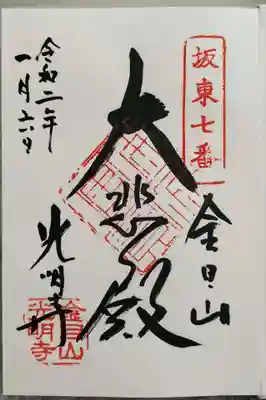 坂東七番
金目山
大悲殿
光明寺
金目山
光明寺
令和二年
一月六日